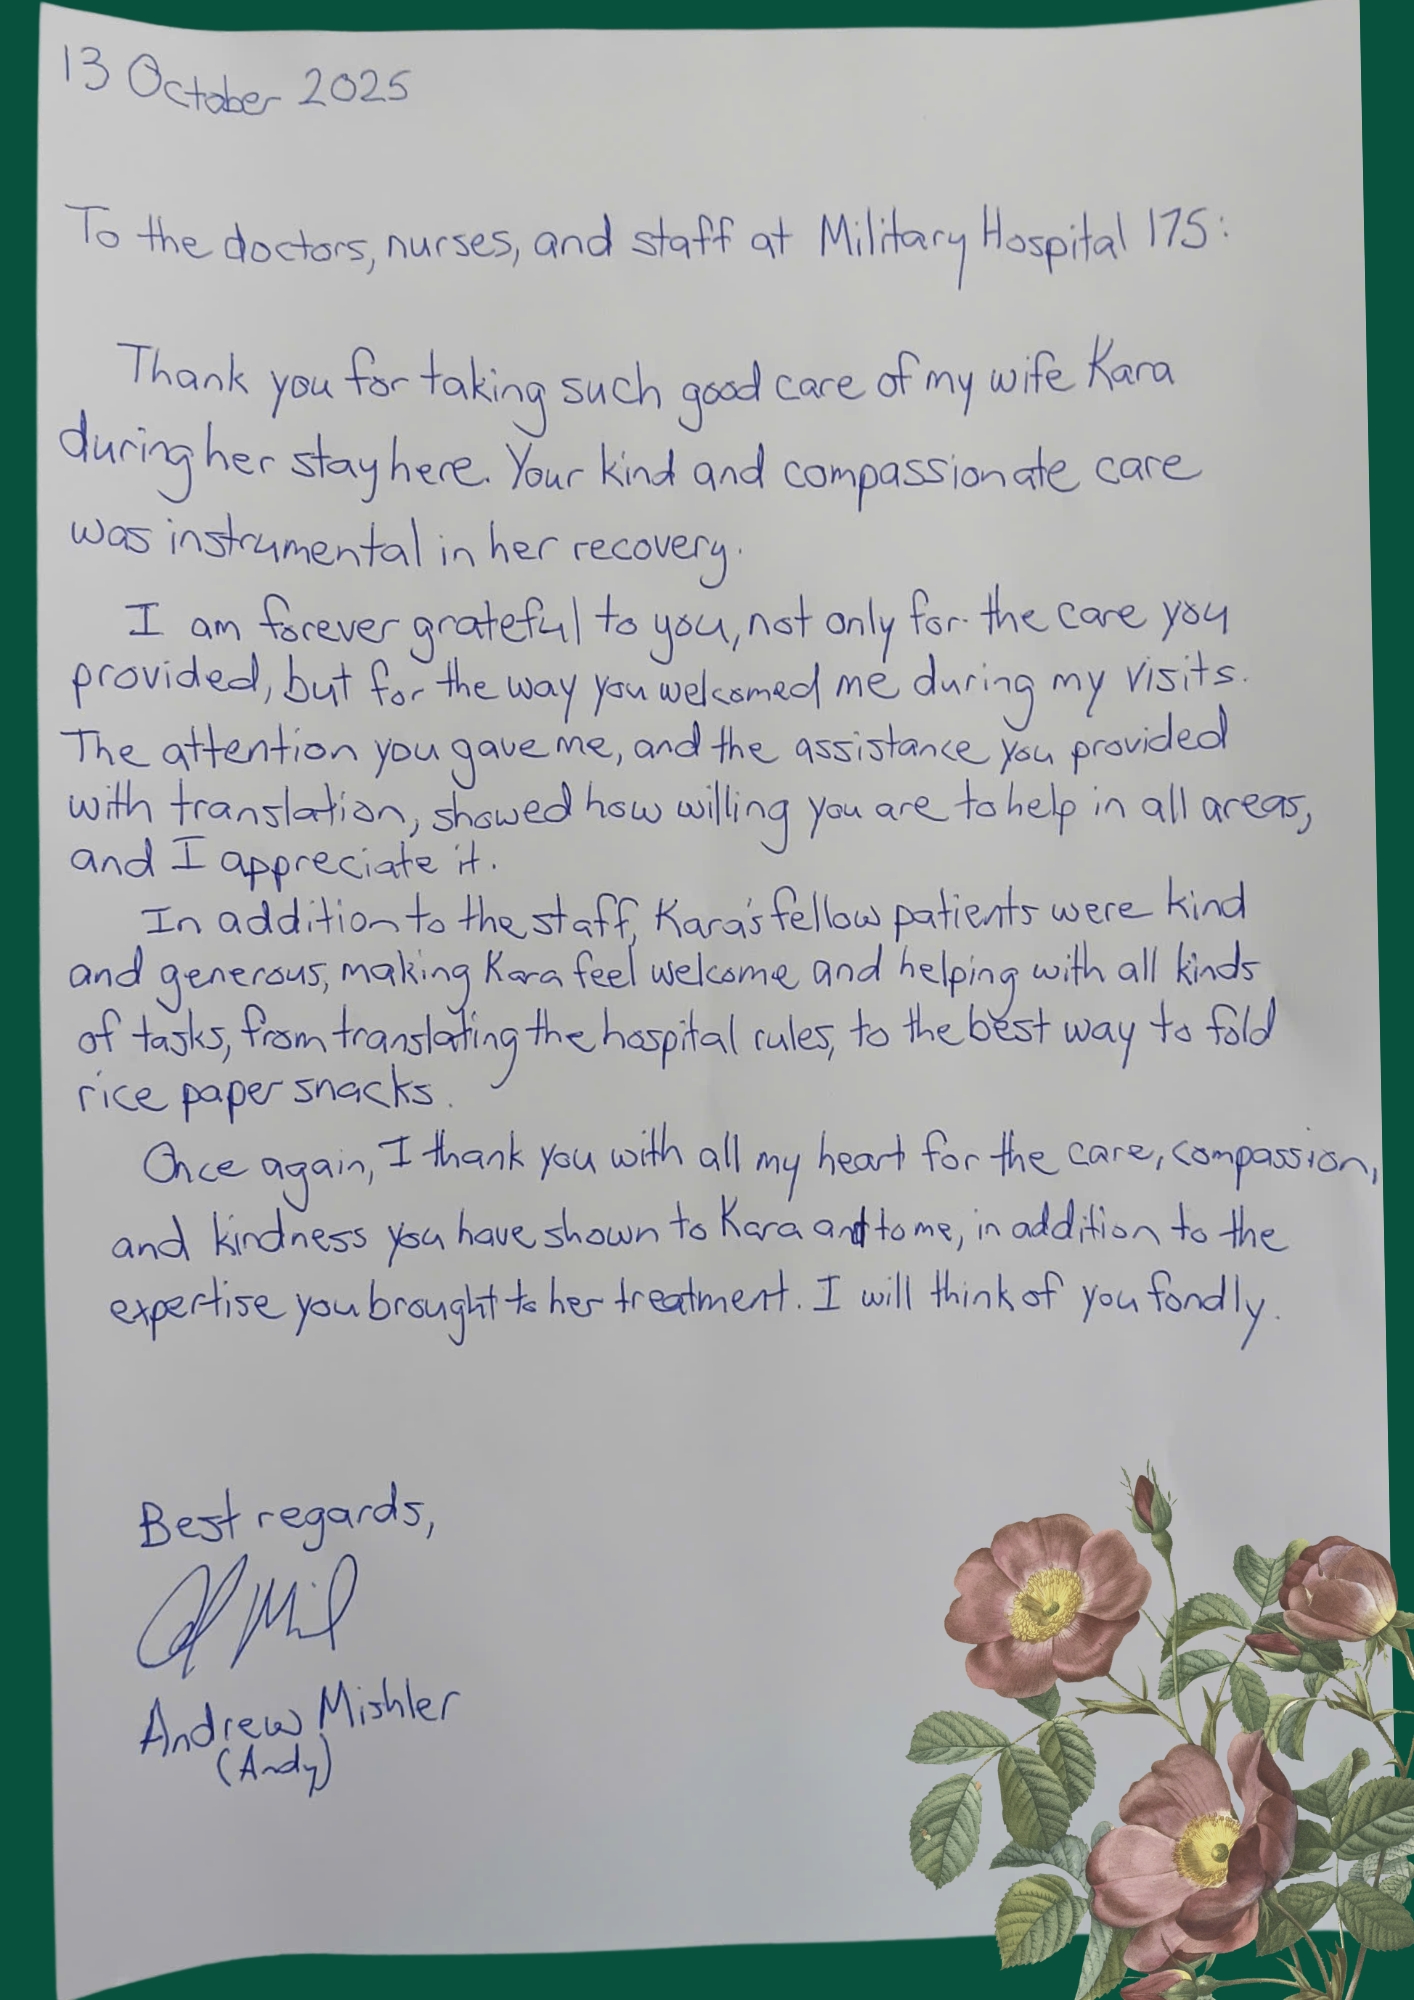 13 October 2025
To the doctors, nurses, and staff at Military Hospital 175:
Thank you for taking such good care of my wife Kara
during her stay here. Your kind and compassionate care
was instrumental in her recovery.
I am forever grateful to you, not only for the care you
provided, but for the way you welcomed me during my visits.
The attention you gave me, and the assistance you provided
with translation, showed how willing you are to help in all areas,
and I appreciate it.
In addition to the staff, Kara's fellow patients were kind
and generous, making Kara feel welcome and helping with all kinds
of tasks, from translating the hospital rules, to the best way to fold
rice paper snacks.
Once again, I thank you with all my heart for the care, compassion,
and kindness you have shown to Kara and to me, in addition to the
expertise you brought to her treatment. I will think of you fondly.
Best regards,
Andrew Mishler
(Andy)